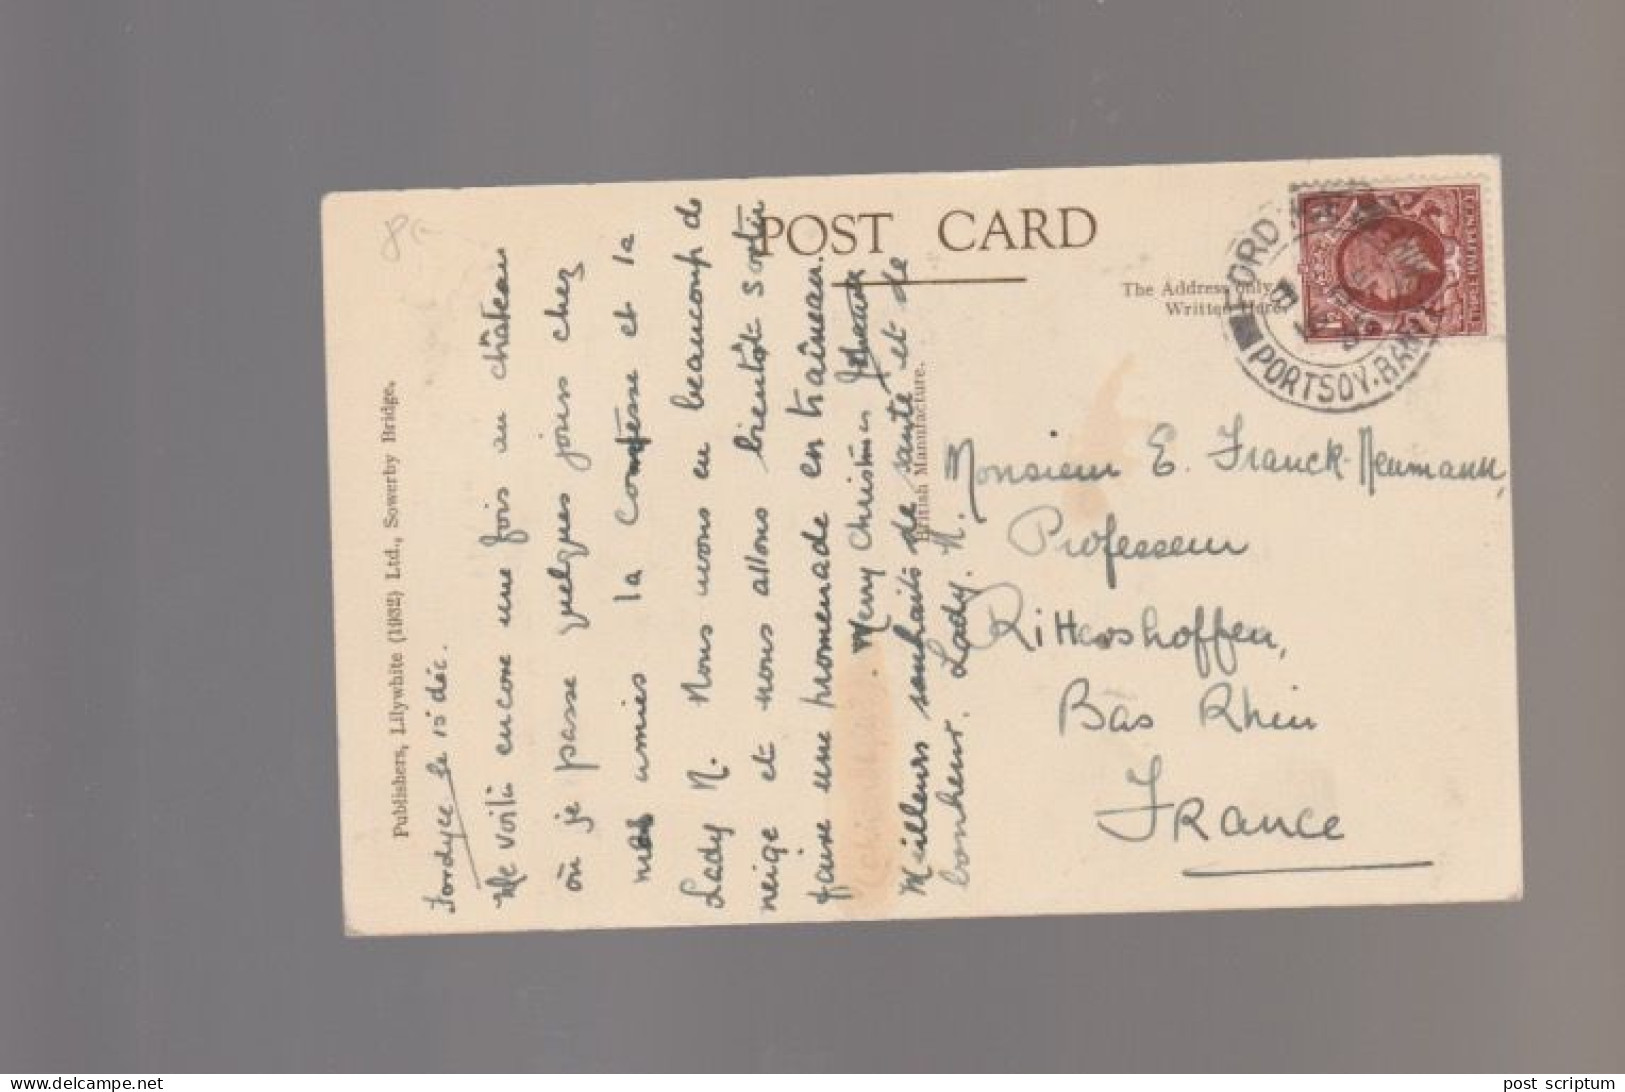 POST CARD
The Address only
Written Here
Publishers, Lilywhite (1932) Ltd., Sowerby Bridge.
British Manufacture.
Fordyce le 15 déc.
Me voilà encore une fois au château
où je passe quelques jours chez
mes amies la Comtesse et la
Lady N. Nous avons eu beaucoup de
neige et nous allons bientôt sortir
faire une promenade en traîneau.
Merry Christmas
Meilleurs souhaits de santé et de
bonheur. Lady. N.
FORDYCE
PORTSOY. BANFF
THREE HALFPENCE
Monsieur E. Franck-Neumann,
Professeur
Rittershoffen,
Bas Rhin
France
post scriptum